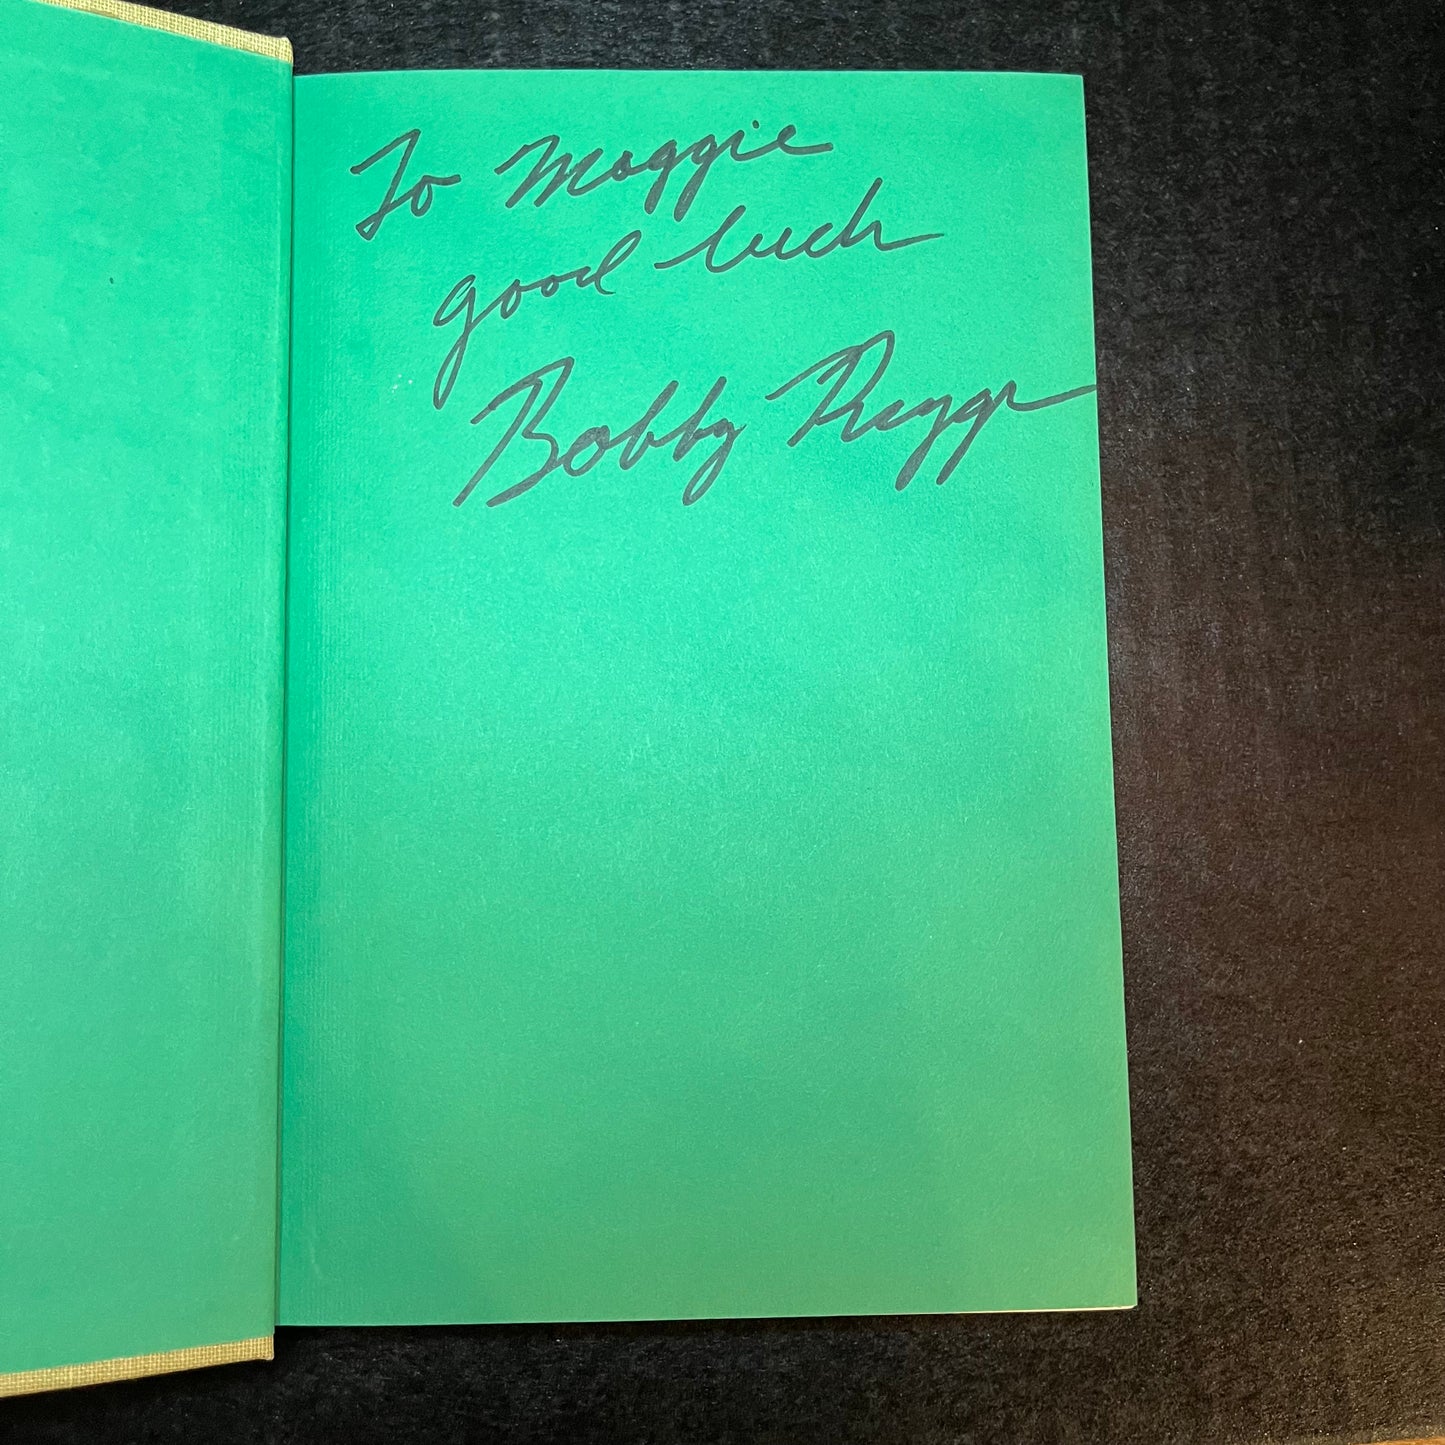 To Maggie
good luck
Bobby Riggs